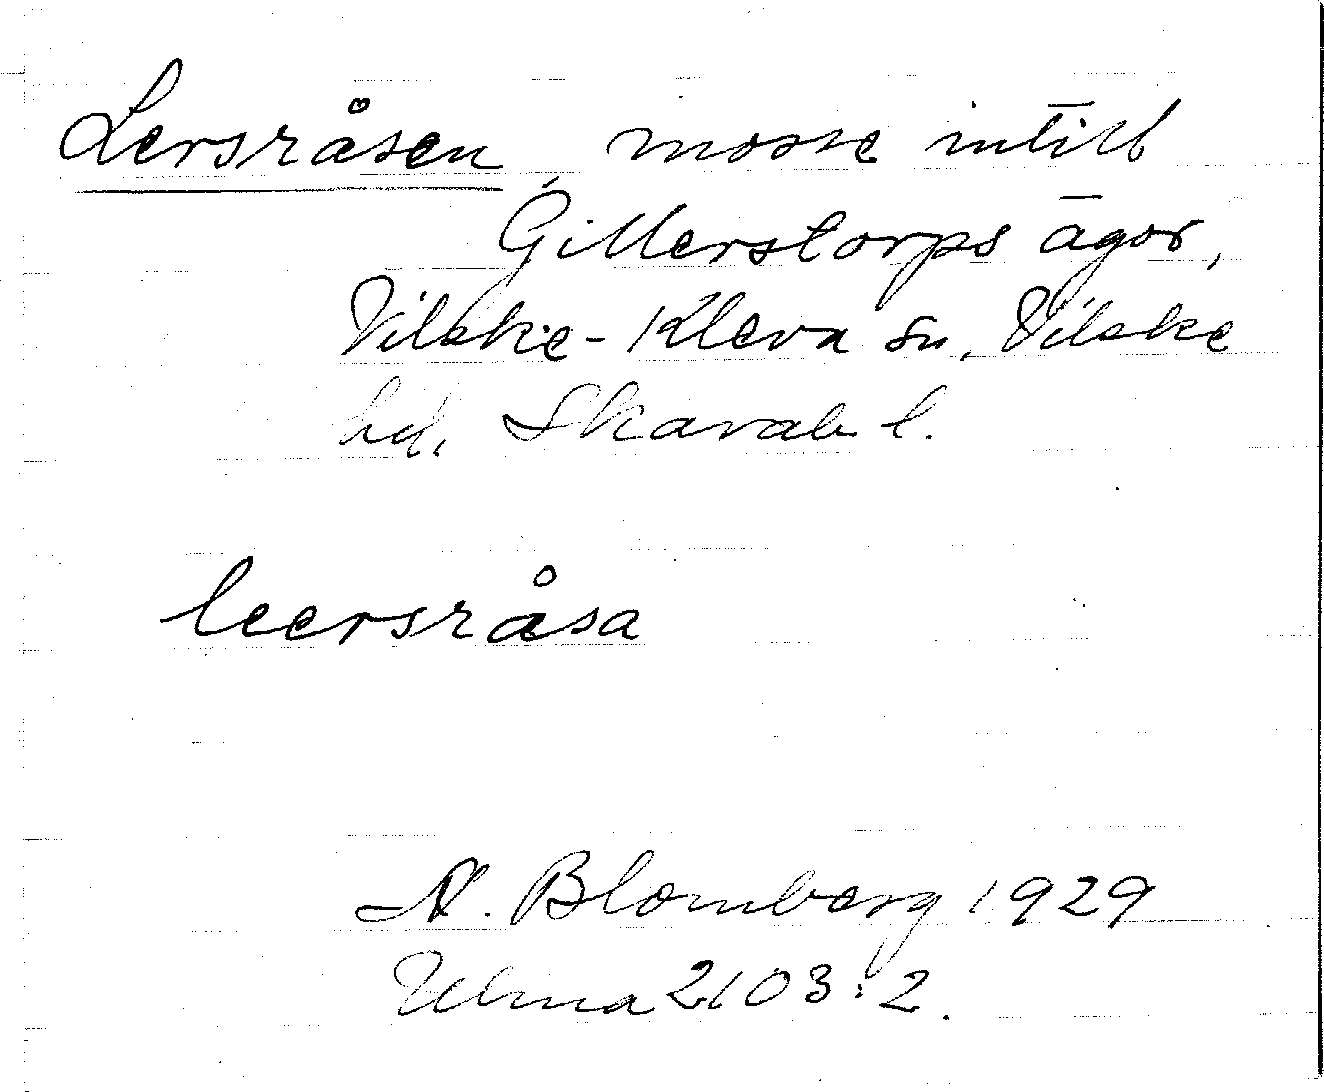 Lersråsen, mosse intill
Gillerstorps ägor,
Vilske-Kleva sn, Vilske
hd, Skarab. l.
leersråsa
A. Blomberg 1929
Ulma 2103:2.